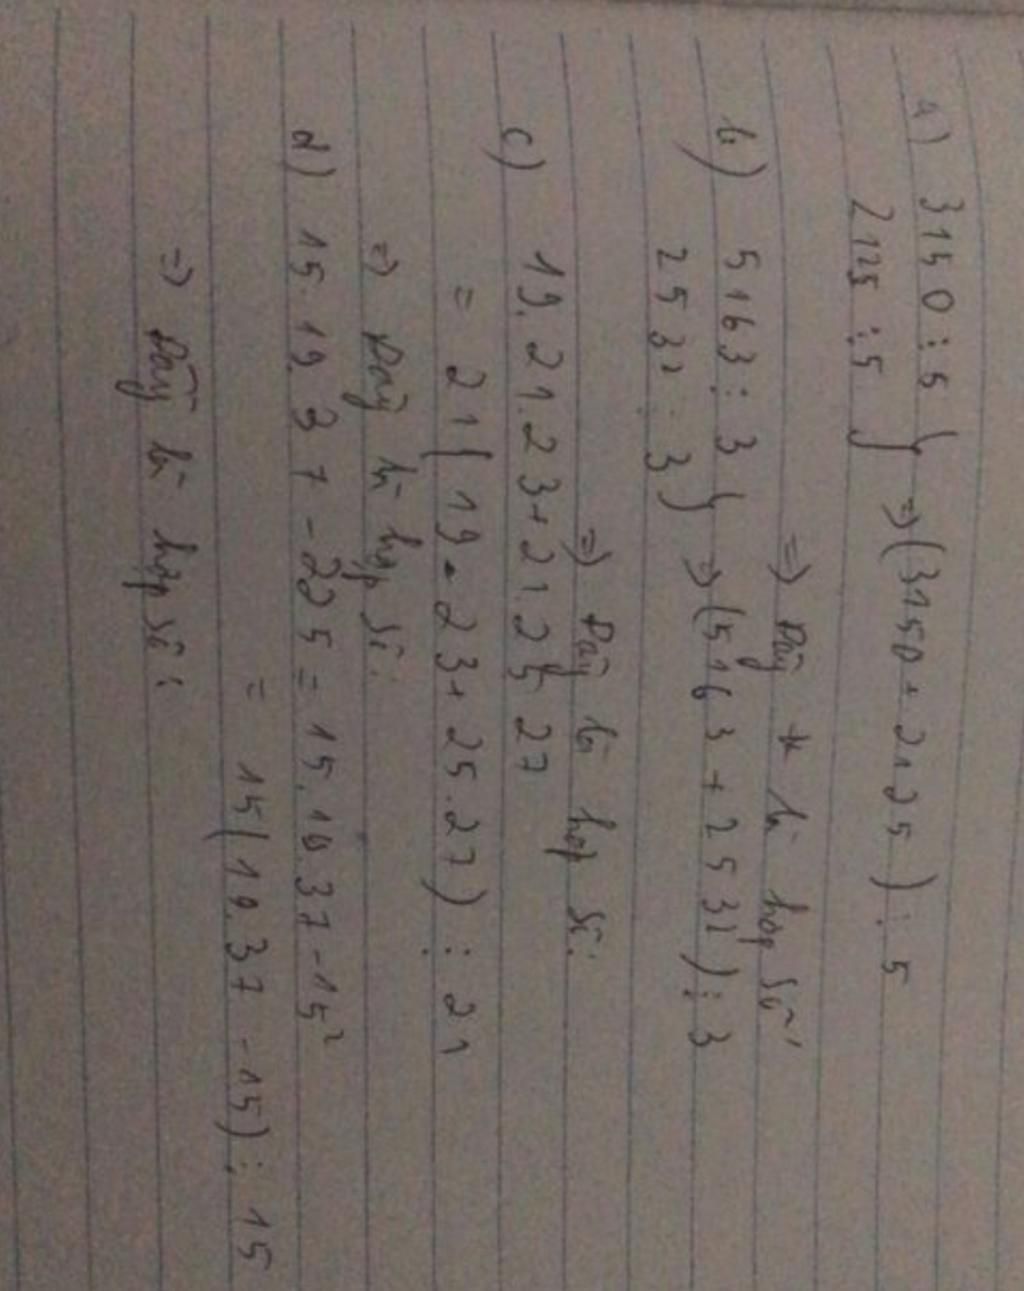 a) 3150 ⋮ 5 } ⇒ (3150 + 2125) ⋮ 5
2125 ⋮ 5
⇒ Đây là hợp số
b) 5163 ⋮ 3 } ⇒ (5163 + 2532) ⋮ 3
2532 ⋮ 3
⇒ Đây là hợp số.
c) 19.21.23+21.25.27
= 21(19.23+25.27) ⋮ 21
⇒ Đây là hợp số.
d) 15.19.37-225 = 15.19.37-15²
= 15(19.37-15) ⋮ 15
⇒ Đây là hợp số.